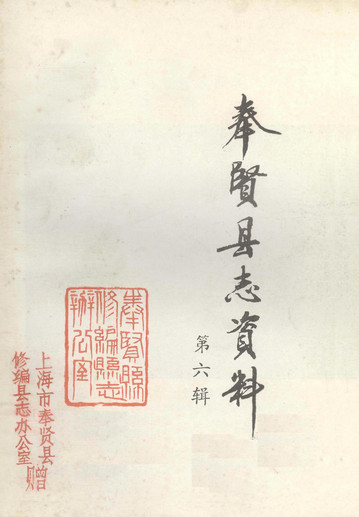 奉賢县志資料
第六辑
奉賢縣
修編縣志
辦公室
上海市奉贤县
修编县志办公室
赠